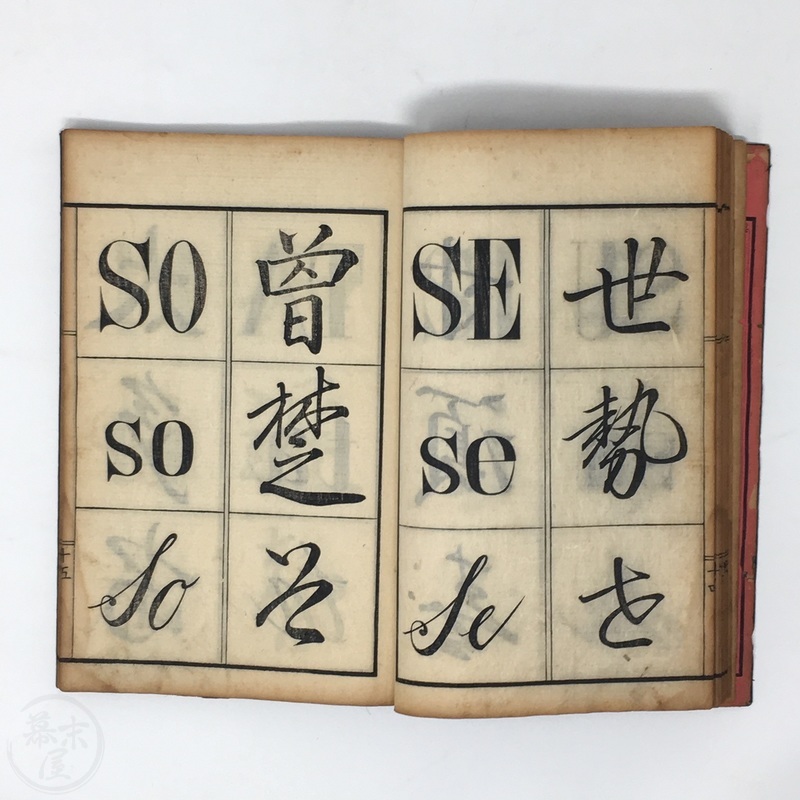 世
勢
せ
SE
se
Se
曾
楚
そ
SO
so
So
十五
幕末屋